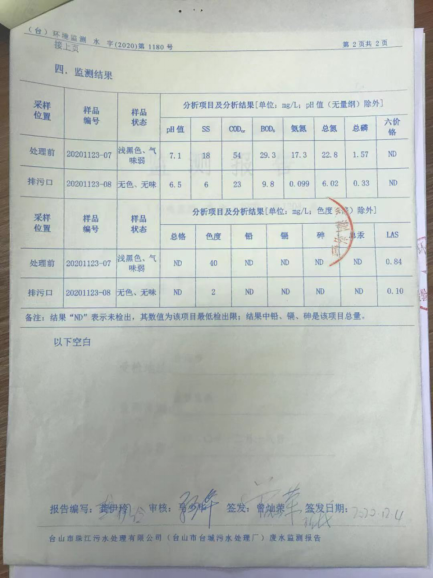 (台)环境监测 水 字(2020)第 1180 号
接上页 第 2 页共 2 页
四、监测结果
采样位置 样品编号 样品状态 分析项目及分析结果[单位：mg/L；pH 值（无量纲）除外]
pH 值 SS COD BOD 氨氮 总氮 总磷 六价铬
处理前 20201123-07 浅黑色、气味弱 7.1 18 54 29.3 17.3 22.8 1.57 ND
排污口 20201123-08 无色、无味 6.5 6 23 9.8 0.099 6.02 0.33 ND
采样位置 样品编号 样品状态 分析项目及分析结果[单位：mg/L；色度 除外]
总铬 色度 铅 镉 砷 总汞 LAS
处理前 20201123-07 浅黑色、气味弱 ND 40 ND ND ND ND 0.84
排污口 20201123-08 无色、无味 ND 2 ND ND ND ND 0.10
备注：结果“ND”表示未检出，其数值为该项目最低检出限；结果中铅、镉、砷是该项目总量。
以下空白
报告编写： 审核： 签发： 签发日期：
台山市 江污水处理有限公司（台山市台城污水处理厂）废水监测报告